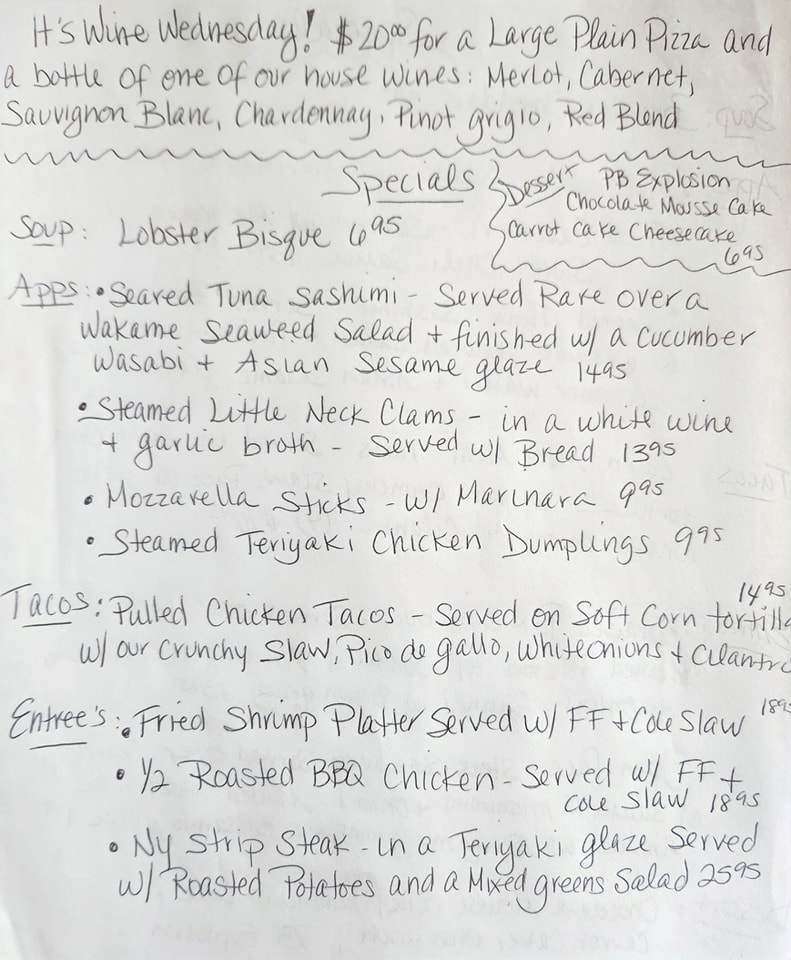 It's Wine Wednesday! $20.00 for a Large Plain Pizza and
a bottle of one of our house wines: Merlot, Cabernet,
Sauvignon Blanc, Chardonnay, Pinot grigio, Red Blend
Specials
Dessert PB Explosion
Chocolate Mousse Cake
Carrot Cake Cheesecake
6.95
Soup: Lobster Bisque 6.95
Apps: • Seared Tuna Sashimi - Served Rare over a
Wakame Seaweed Salad + finished w/ a cucumber
Wasabi + Asian Sesame glaze 14.95
• Steamed Little Neck Clams - in a white wine
+ garlic broth - Served w/ Bread 13.95
• Mozzarella Sticks - w/ Marinara 9.95
• Steamed Teriyaki Chicken Dumplings 9.95
14.95
Tacos: Pulled Chicken Tacos - Served on Soft Corn tortilla
w/ our Crunchy Slaw, Pico de gallo, White onions + Cilantro
Entree's: • Fried Shrimp Platter Served w/ FF + Cole Slaw 18.95
• 1/2 Roasted BBQ Chicken - Served w/ FF +
Cole Slaw 18.95
• Ny Strip Steak - in a Teriyaki glaze Served
w/ Roasted Potatoes and a Mixed greens Salad 25.95